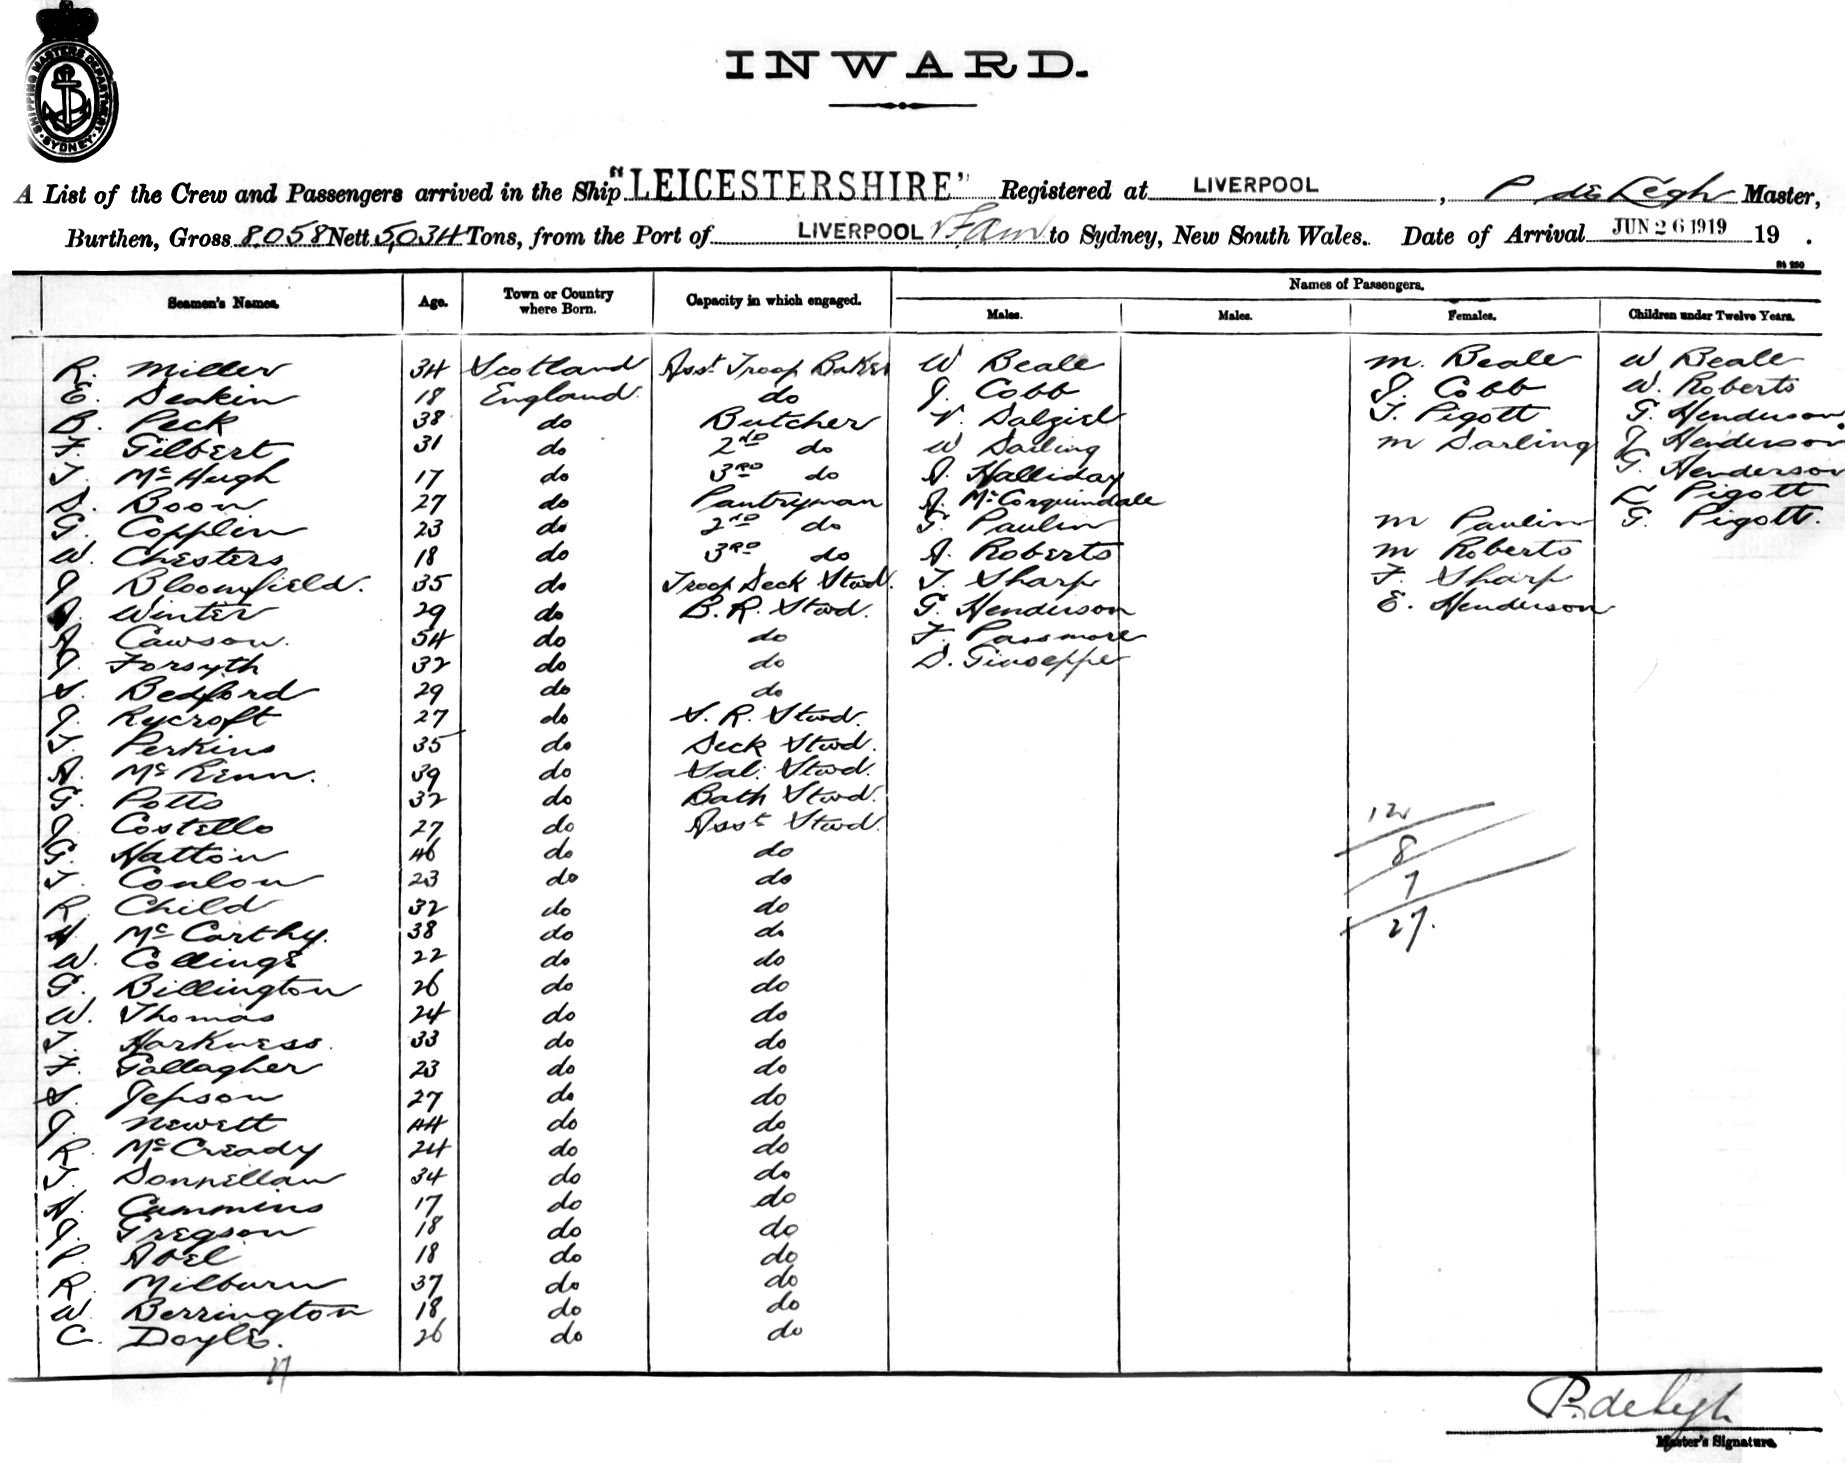 SHIPPING MASTERS DEPARTMENT SYDNEY
INWARD.
A List of the Crew and Passengers arrived in the Ship "LEICESTERSHIRE" Registered at LIVERPOOL, P de Legh Master,
Burthen, Gross 8,058 Nett 5,034 Tons, from the Port of LIVERPOOL to Sydney, New South Wales. Date of Arrival JUN 26 1919 19 .
St 250
Seamen's Names. Age. Town or Country where Born. Capacity in which engaged. Names of Passengers.
Males. Males. Females. Children under Twelve Years.
R. Miller 34 Scotland Asst Troop Baker W Beale M. Beale W Beale
E. Deakin 18 England do J. Cobb J. Cobb W. Roberts
B. Peck 38 do Butcher V. Dalziel T. Pigott G. Henderson
F. Gilbert 31 do 2ND do W Darling M Darling J Henderson
T. McHugh 17 do 3RD do A. Halliday G. Henderson
D. Boon 27 do Pantryman A. McCorquindale L Pigott
G. Copplin 23 do 2ND do G. Paulin M Paulin G. Pigott.
W. Chesters 18 do 3RD do A. Roberts M Roberts
J Bloomfield. 35 do Troop Deck Stwd. T. Sharp F. Sharp
Winter 29 do B. R. Stwd. G. Henderson E. Henderson
A. Cawson. 54 do do F. Passmore
J. Forsyth 32 do do D. Giuseppe
S. Bedford 29 do do
J. Rycroft 27 do S. R. Stwd.
T. Perkins 35 do Deck Stwd.
A. McKenn. 39 do Sal. Stwd.
G. Potts 32 do Bath Stwd.
J. Costello 27 do Asst Stwd. 12
G. Hatton 46 do do 8
T. Conlon 23 do do 7
R. Child 32 do do
H. McCarthy. 38 do do 27.
W. Collinge 22 do do
G. Billington 26 do do
W. Thomas 24 do do
T. Harkness. 33 do do
F. Gallagher 23 do do
S. Jepson 27 do do
J. Newett 44 do do
R. McCready 24 do do
T. Donnellan 34 do do
H. Cummins 17 do do
J. Gregson 18 do do
P. Abel 18 do do
R. Milburn 37 do do
W. Berrington 18 do do
C. Doyle. 26 do do
P. de Legh
Master's Signature.